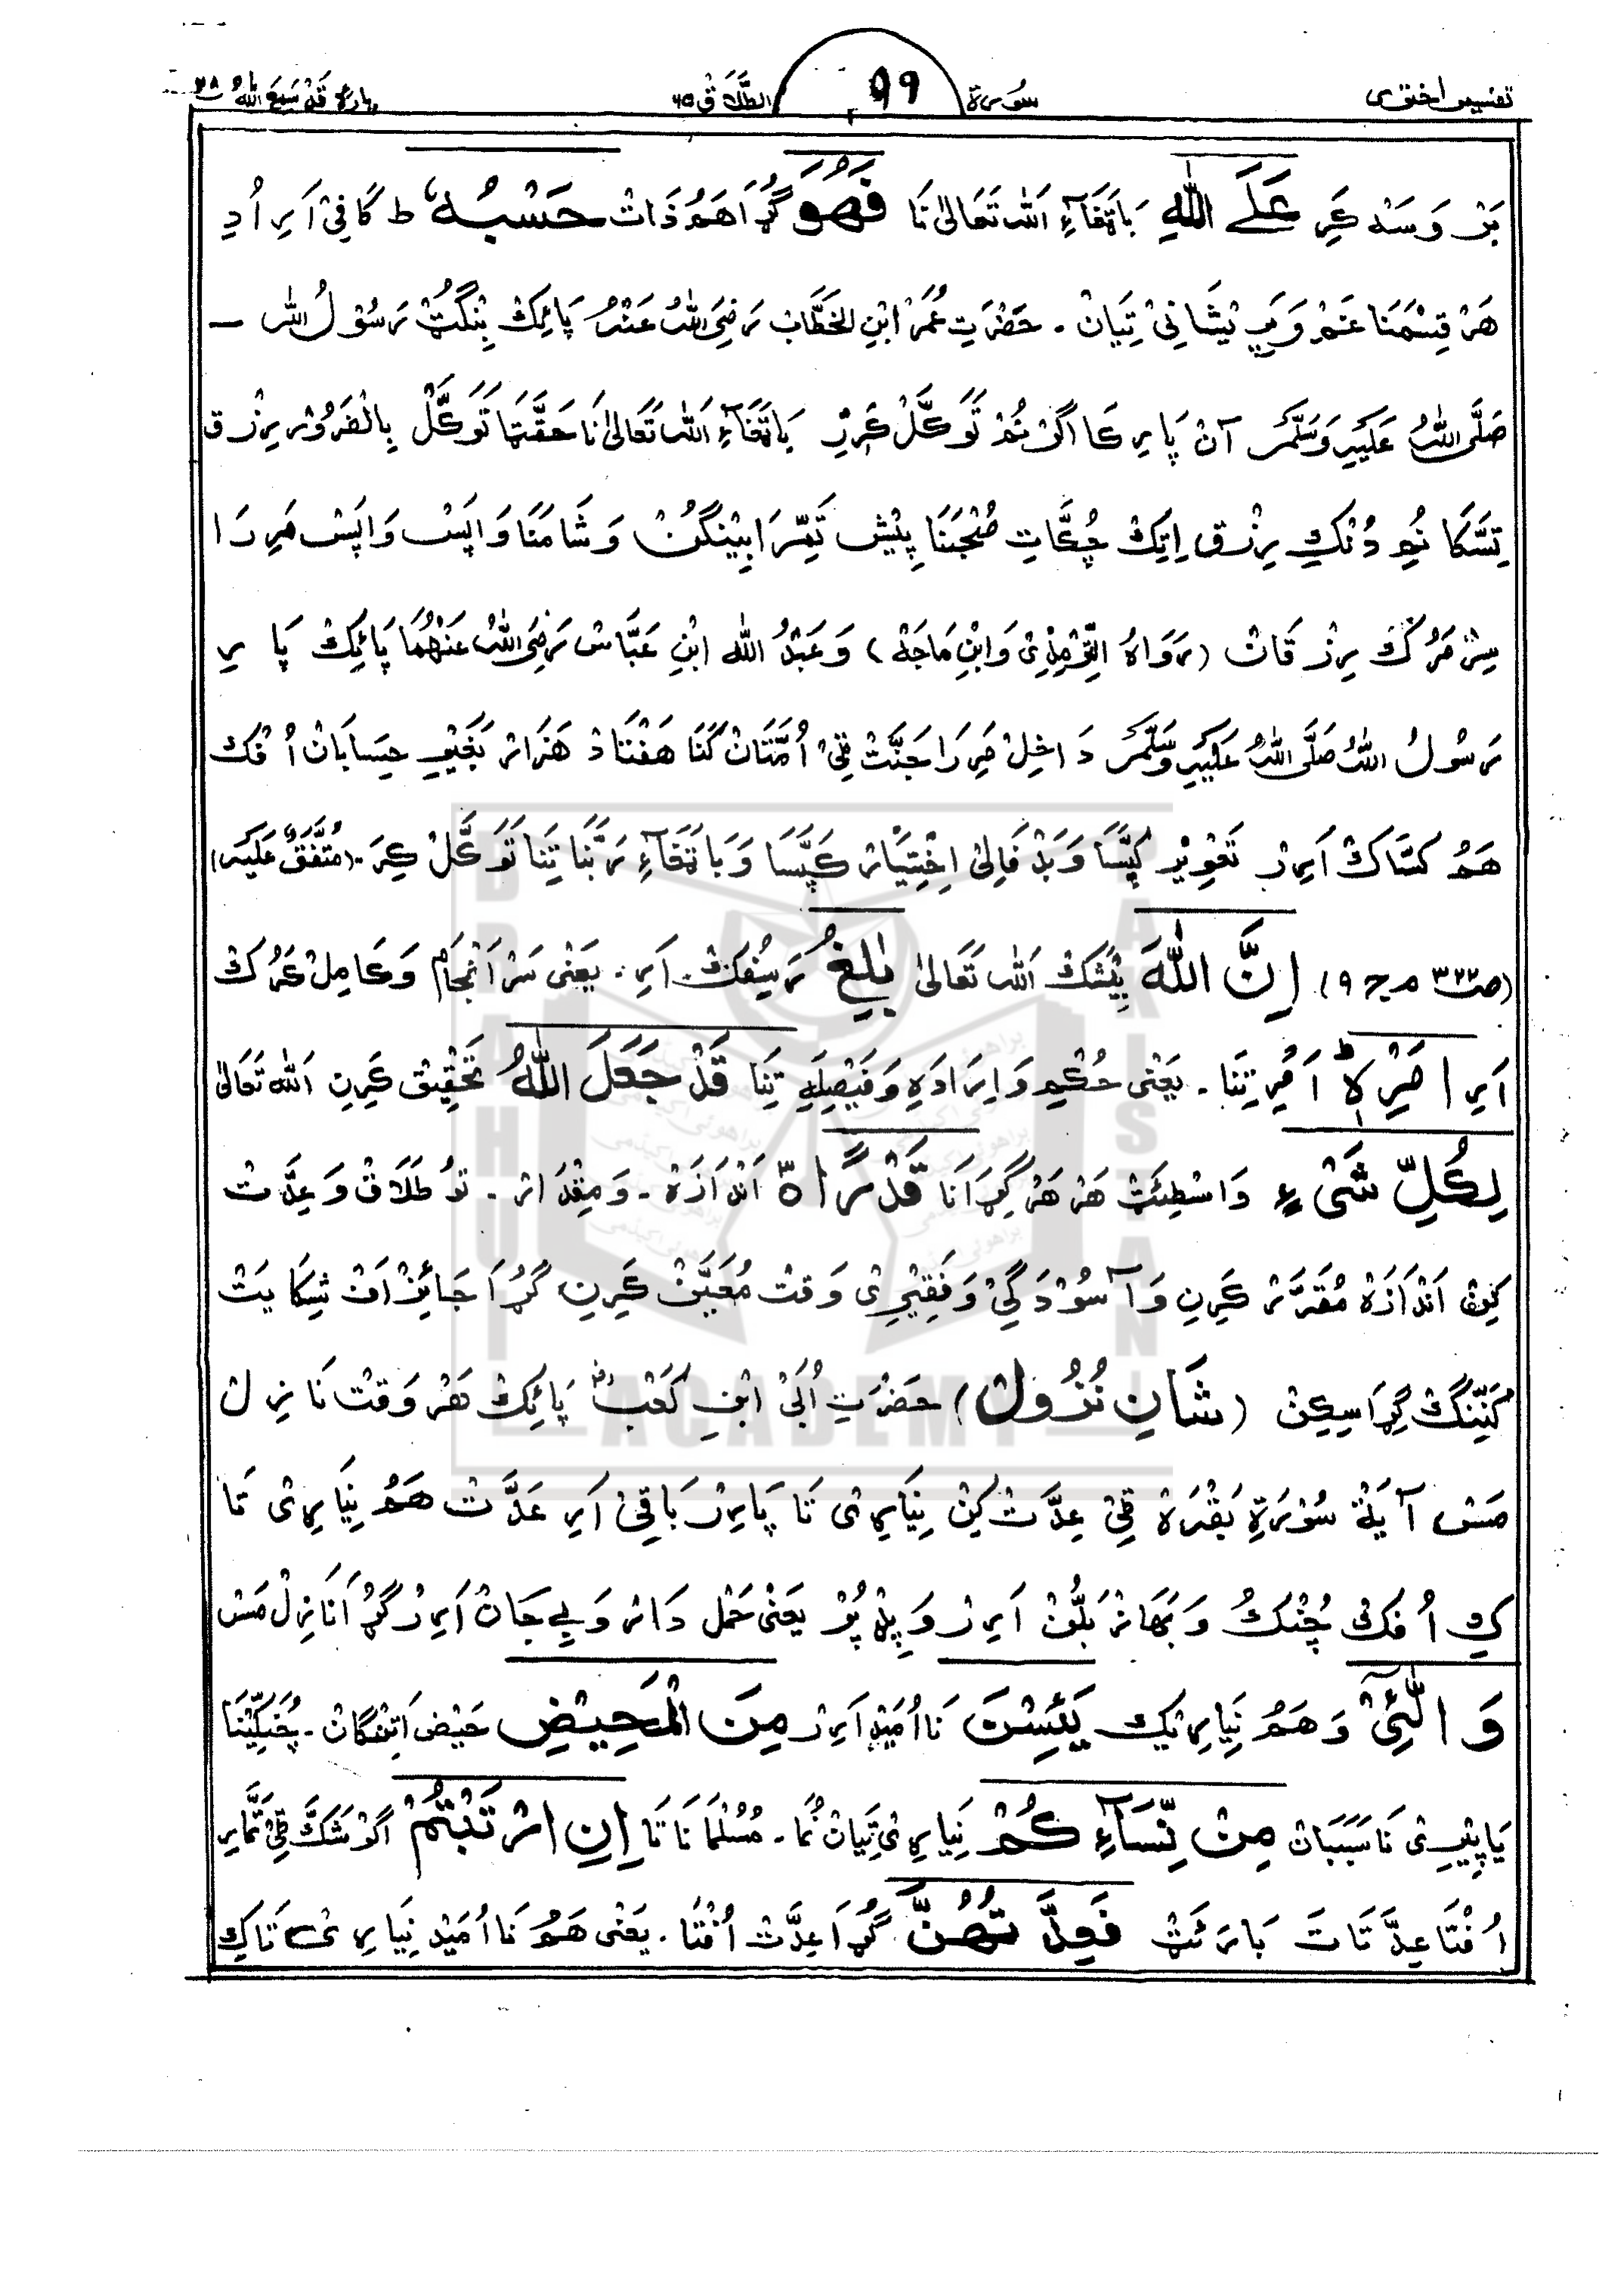 تفسیر اختری سُوْرۃ ٩٩ الطَّلَاق ٦٥ پارہ قَدْ سَمِعَ اللّٰہُ ٢٨
بَرْ وَسَہ کَرِ عَلَی اللّٰهِ بَاتِّفَآءِ اَللّٰہ تَعَالیٰ نَا فَهُوَ گُڑَا هَمُو ذَات حَسْبُهٗ ط کَافِیْ اَرِ اُدِ
هَرْ قِسْمَنَا غَمْ وَ پَرِیْشَانِیْ تِیَانْ ۔ حَضْرَتِ عُمَرْ ابْنِ الخَطَّاب رَضِیَ اللّٰہُ عَنْہُ پَائِکْ بِنْگُتْ رَسُوْلُ اللّٰہ ۔
صَلَّی اللّٰہُ عَلَیْہِ وَسَلَّمَ آنْ پَارِ کَا اَگَرْ نُمْ تَوَکَّلْ کَرِرْ بَاتِّفَآءِ اَللّٰہ تَعَالیٰ نَا حَقَّیْہَا تَوَکَّلْ بِالْضَرُوْر رِزْق
تِسَّکَا نُمِ دُنْکِہ رِزْق اِتِکْ چُکَّاتِ صُبْحَنَا پِیْش تَمِّرَا بِیْنْگُنْ وَشَامَنَا وَاپَسْ وَاپَسْ مَرِرَا
سِرْ مَرُکْ رِزْقَانْ (رَوَاہُ التِّرْمِذِیْ وَابْنِ مَاجَہْ) وَعَبْدُ اللّٰہ ابْنِ عَبَّاسْ رَضِیَ اللّٰہُ عَنْهُمَا پَائِکْ پَارِ
رَسُوْلُ اللّٰہُ صَلَّی اللّٰہُ عَلَیْہِ وَسَلَّمَ دَاخِلْ مَرِرَا جَنَّتْ قِیْ اُمَّتَانْ کَنَا هَفْتَادْ هَزَارْ بَغَیْرِ حِسَابَانْ اُفْکْ
هَمُ کَسَّاکْ اَرِرْ تَعْوِیْذ کَپَّسَا وَبَدْ فَالِیْ اِخْتِیَارْ کَپَّسَا وَبَاتِّفَآءِ رَبَّنَا تِنَا تَوَکَّلْ کِرَ ۔ (مُتَّفَقٌ عَلَیْہ)
(صت ٣٢٢ م ج ٩) اِنَّ اللّٰهَ بِیْشَکْ اَللّٰہ تَعَالیٰ بٰلِغُ رَسِیْفُکْ اَرِ ۔ یَعْنِی سَرْ اَنْجَام وَکَامِلْ کَرُکْ
اَرِ اَمْرِهٖ ط اَمْرِ تِنَا ۔ یَعْنِی حُکْمِ وَاِرَادَہِ وَفَیْصِلَہِ تِنَا قَدْ جَعَلَ اللّٰهُ تَحْقِیْق کَرِنِ اَللّٰہ تَعَالیٰ
لِكُلِّ شَیْءٍ وَاسْطِئَٹْ هَرْ هَرْ گِڑَانَا قَدْرًا ٥ اَنْدَازَہْ ۔ وَمِقْدَارْ ۔ تَوْ طَلَاقْ وَعِدَّتْ
کِنْ اَنْدَازَہْ مُقَرَّرْ کَرِنِ وَآسُوْدَگِیْ وَفَقِیْرِیْ وَقْتْ مُعَیَّنْ کَرِنِ گُڑَا جَائِزْ اَفْ شِکَایَتْ
کَنِّنْگْ گِڑَاسِکِنْ (شَانِ نُزُوْل) حَضْرَتِ اُبَیْ ابْنِ کَعْبْ پَائِکْ هَرْ وَقْتْ نَازِلْ
مَسْ آیَۃْ سُوْرَۃِ بَقَرَہْ قِیْ عِدَّتْ کِنْ نِیَارِیْ تَا پَارِرْ بَاقِیْ اَرِ عَدَّتْ هَمُ نِیَارِیْ تَا
کِ اُفْکْ چُنْکُ وَبَهَازْ بَلُّنْ اَرِرْ وَپِڈْ پُرْ یَعْنِی حَمْل دَارْ وَبِے جَانْ اَرِرْ گُڑَا نَازِلْ مَسْ
وَ الّٰٓئِیْ وَهَمُ نِیَارِیْکْ یَئِسْنَ نَا اُمَیْد اَرِرْ مِنَ الْمَحِیْضِ حَیْض اَتِنْگَانْ ۔
یَا پِیْرِیْ نَا سَبَبَانْ مِنْ نِّسَآءِكُمْ نِیَارِیْ تِیَانْ نُمَا ۔ مُسْلُمَانَا تَا اِنِ ارْتَبْتُمْ اَگَرْ شَکَّ قِیْ
اُفْتَا عِدَّتَاتَ بَارَئَٹْ فَعِدَّتُهُنَّ گُڑَا عِدَّتْ اُفْتَا ۔ یَعْنِی هَمُ نَا اُمَیْدْ نِیَارِیْ تَاکِ
BRAHUI
ACADEMY
PAKISTAN